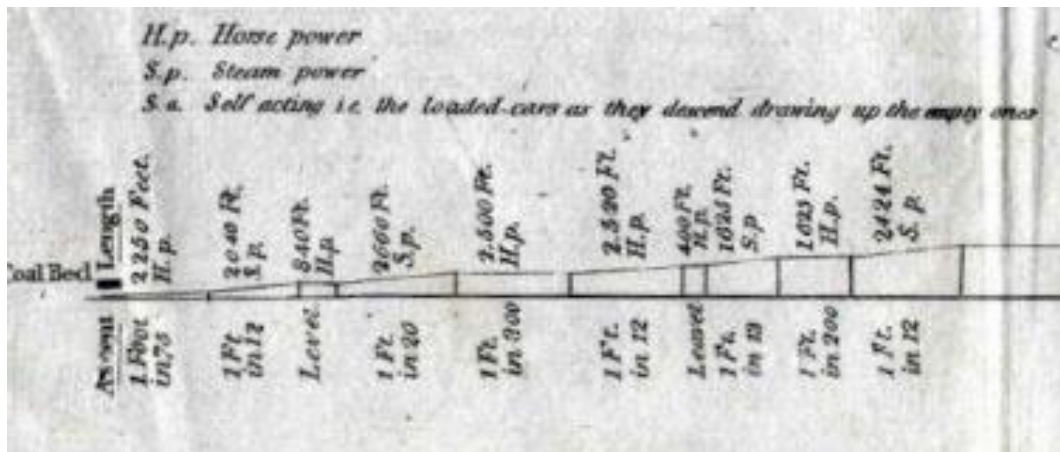 H.p. Horse power
S.p. Steam power
S.a. Self acting i.e. the loaded cars as they descend drawing up the empty ones
Length
2250 Feet.
H.p.
2040 Ft.
S.p.
840 Ft.
H.p.
S.p.
2500 Ft.
H.p.
2520 Ft.
H.p.
400 Ft.
H.p.
1625 Ft.
S.p
1625 Ft.
H.p.
2424 Ft.
S. p.
Coal Bed
Ascent
1 Foot
in 75
1 Ft
in 12
Level
1 Ft.
in 20
1 Ft.
in 300
1 Ft.
in 12
Level
1 Ft.
1 Ft.
in 200
1 Ft.
in 12